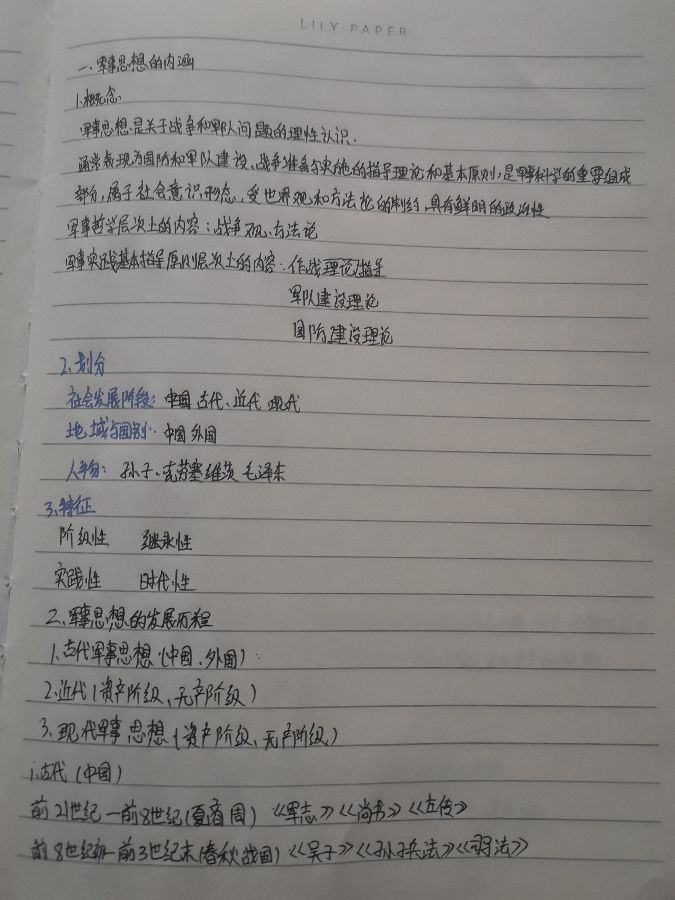 LILY PAPER
一.军事思想的内涵
1.概念
军事思想是关于战争和军队问题的理性认识.
通常表现为国防和军队建设、战争准备与实施的指导理论和基本原则,是军事科学的重要组成
部分,属于社会意识形态,受世界观和方法论的制约,具有鲜明的政治性
军事哲学层次上的内容:战争观、方法论
军事实践基本指导原则层次上的内容:作战理论指导
军队建设理论
国防建设理论
2.划分
社会发展阶段:中国 古代、近代 现代
地域与国别:中国 外国
人物:孙子、克劳塞维茨 毛泽东
3.特征
阶级性 继承性
实践性 时代性
2.军事思想的发展历程
1.古代军事思想(中国、外国)
2.近代(资产阶级、无产阶级)
3.现代军事思想(资产阶级、无产阶级)
1.古代(中国)
前21世纪—前8世纪(夏商周) 《军志》《尚书》《左传》
前8世纪初—前3世纪末(春秋战国)《吴子》《孙子兵法》《司马法》